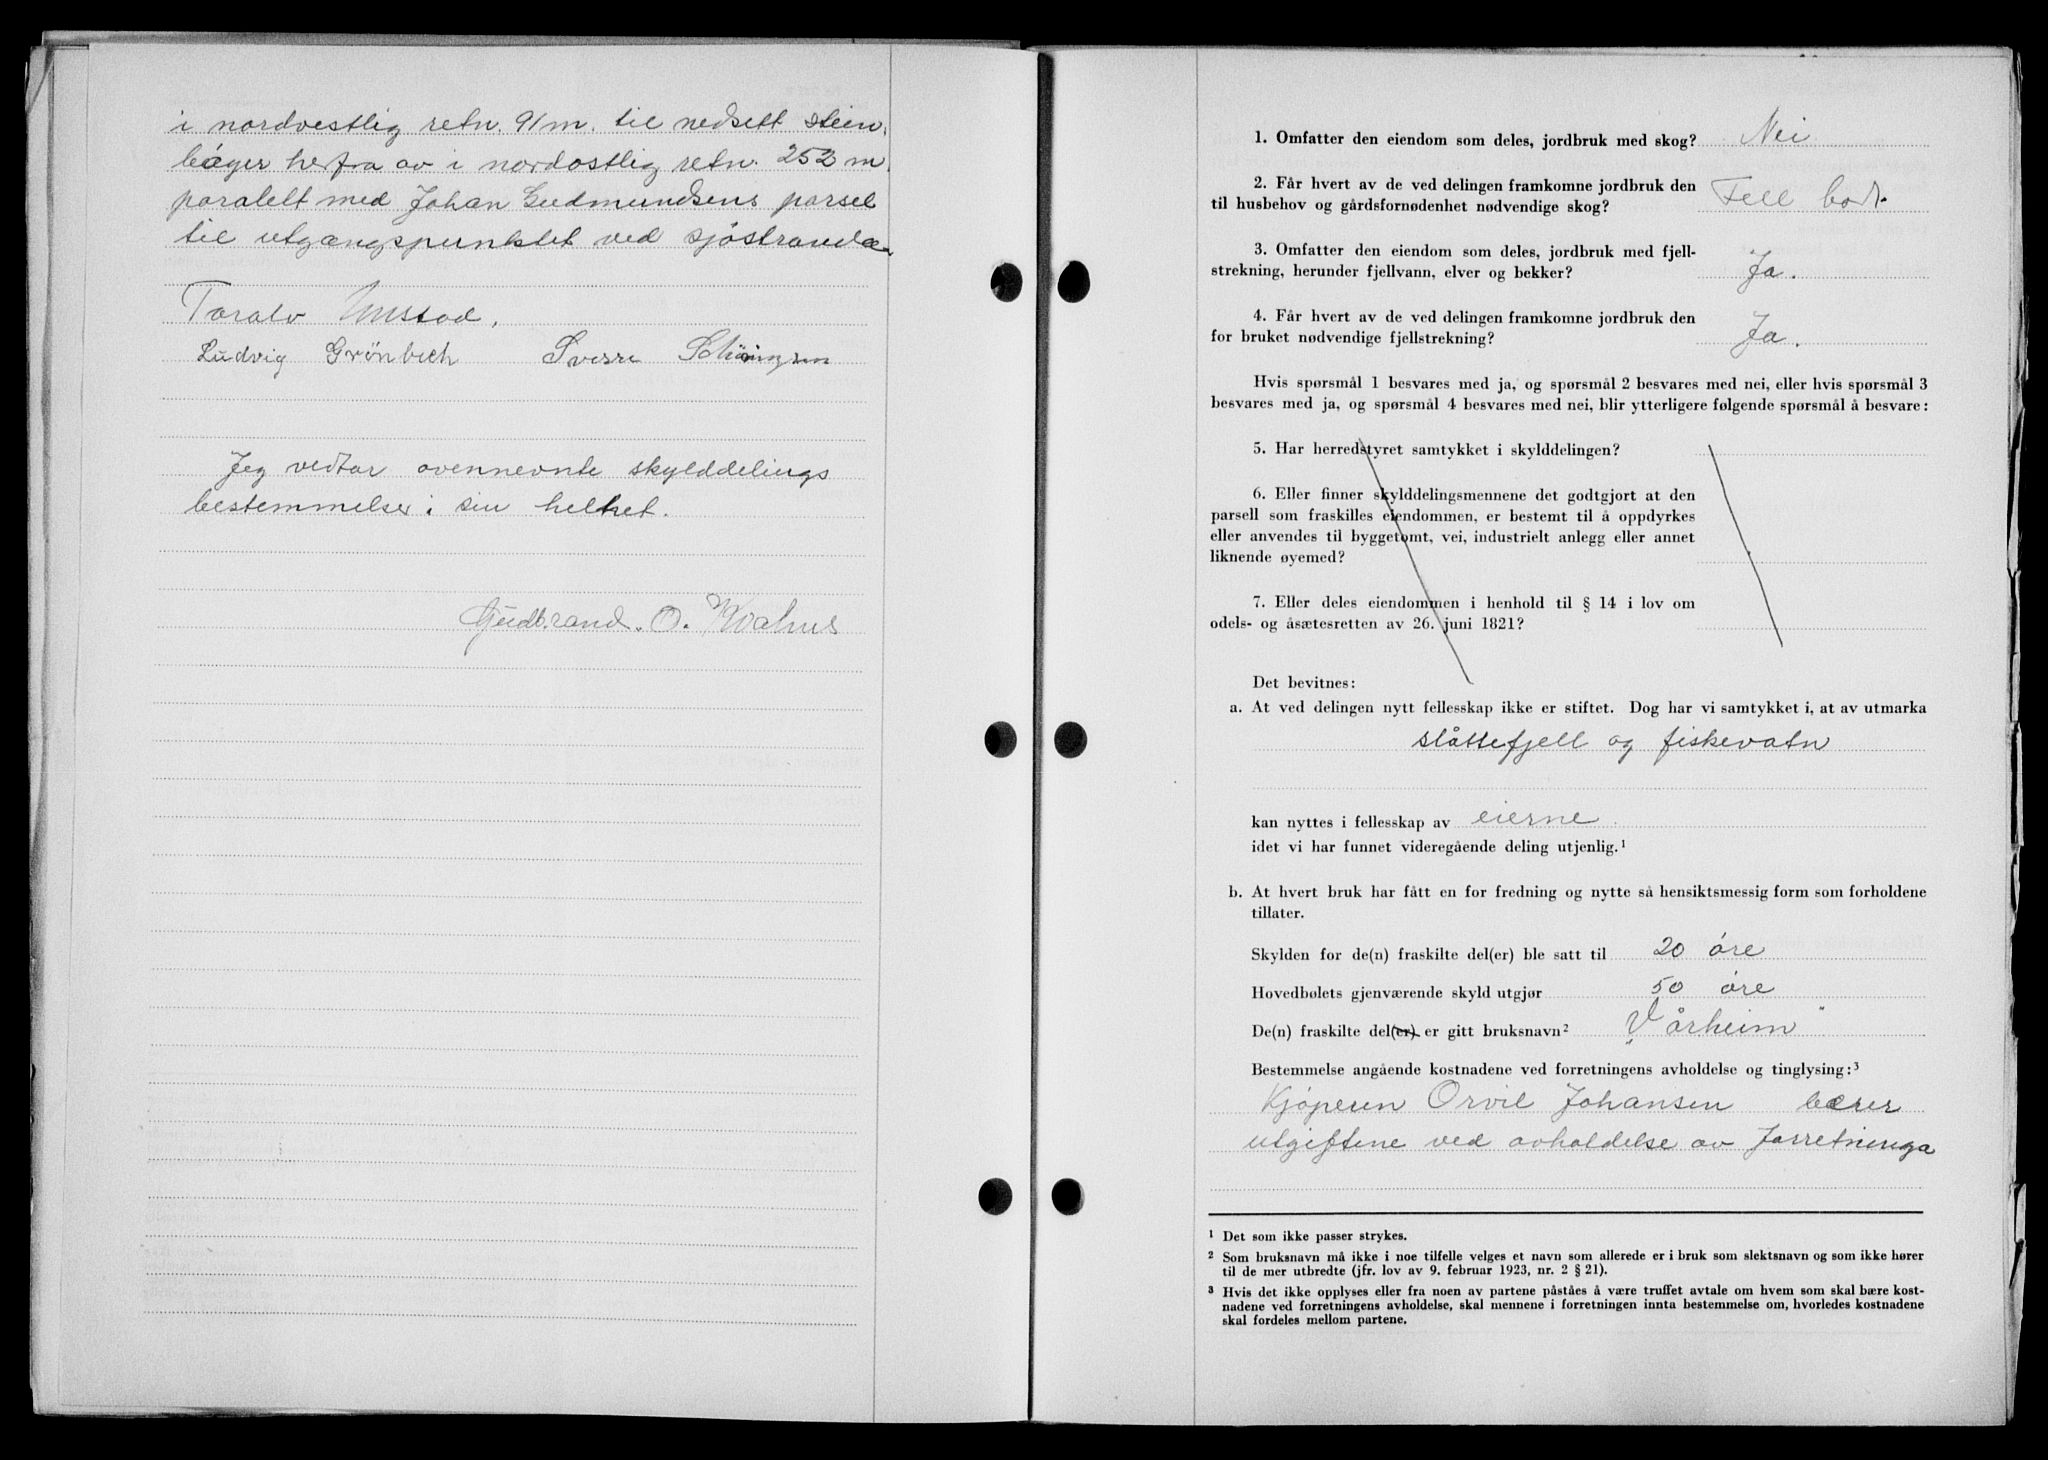 i nordvestlig retn. 91 m. til nedsett stein,
bøyer herfra av i nordostlig retn. 252 m
paralelt med Johan Gudmundsens parsel
til utgangspunktet ved sjøstranda.
Toralv Unstad.
Ludvig Grönbech Sverre
Jeg vedtar ovennevnte skylddelings
bestemmelser i sin helhet.
Gudbrand. O. Kvahus
1. Omfatter den eiendom som deles, jordbruk med skog? Nei
2. Får hvert av de ved delingen framkomne jordbruk den
til husbehov og gårdsfornødenhet nødvendige skog? Fell bort.
3. Omfatter den eiendom som deles, jordbruk med fjell-
strekning, herunder fjellvann, elver og bekker? Ja.
4. Får hvert av de ved delingen framkomne jordbruk den
for bruket nødvendige fjellstrekning? Ja.
Hvis spørsmål 1 besvares med ja, og spørsmål 2 besvares med nei, eller hvis spørsmål 3
besvares med ja, og spørsmål 4 besvares med nei, blir ytterligere følgende spørsmål å besvare:
5. Har herredstyret samtykket i skylddelingen?
6. Eller finner skylddelingsmennene det godtgjort at den
parsell som fraskilles eiendommen, er bestemt til å oppdyrkes
eller anvendes til byggetomt, vei, industrielt anlegg eller annet
liknende øyemed?
7. Eller deles eiendommen i henhold til § 14 i lov om
odels- og åsætesretten av 26. juni 1821?
Det bevitnes:
a. At ved delingen nytt fellesskap ikke er stiftet. Dog har vi samtykket i, at av utmarka
slåttefjell og fiskevatn
kan nyttes i fellesskap av eierne.
idet vi har funnet videregående deling utjenlig.¹
b. At hvert bruk har fått en for fredning og nytte så hensiktsmessig form som forholdene
tillater.
Skylden for de(n) fraskilte del(er) ble satt til 20 øre
Hovedbølets gjenværende skyld utgjør 50 øre
De(n) fraskilte del(er) er gitt bruksnavn² „Vårheim"
Bestemmelse angående kostnadene ved forretningens avholdelse og tinglysing:³
Kjøperen Orvil Johansen bærer
utgiftene ved avholdelse av forretninga
¹ Det som ikke passer strykes.
² Som bruksnavn må ikke i noe tilfelle velges et navn som allerede er i bruk som slektsnavn og som ikke hører
til de mer utbredte (jfr. lov av 9. februar 1923, nr. 2 § 21).
³ Hvis det ikke opplyses eller fra noen av partene påståes å være truffet avtale om hvem som skal bære kost-
nadene ved forretningens avholdelse, skal mennene i forretningen innta bestemmelse om, hvorledes kostnadene
skal fordeles mellom partene.